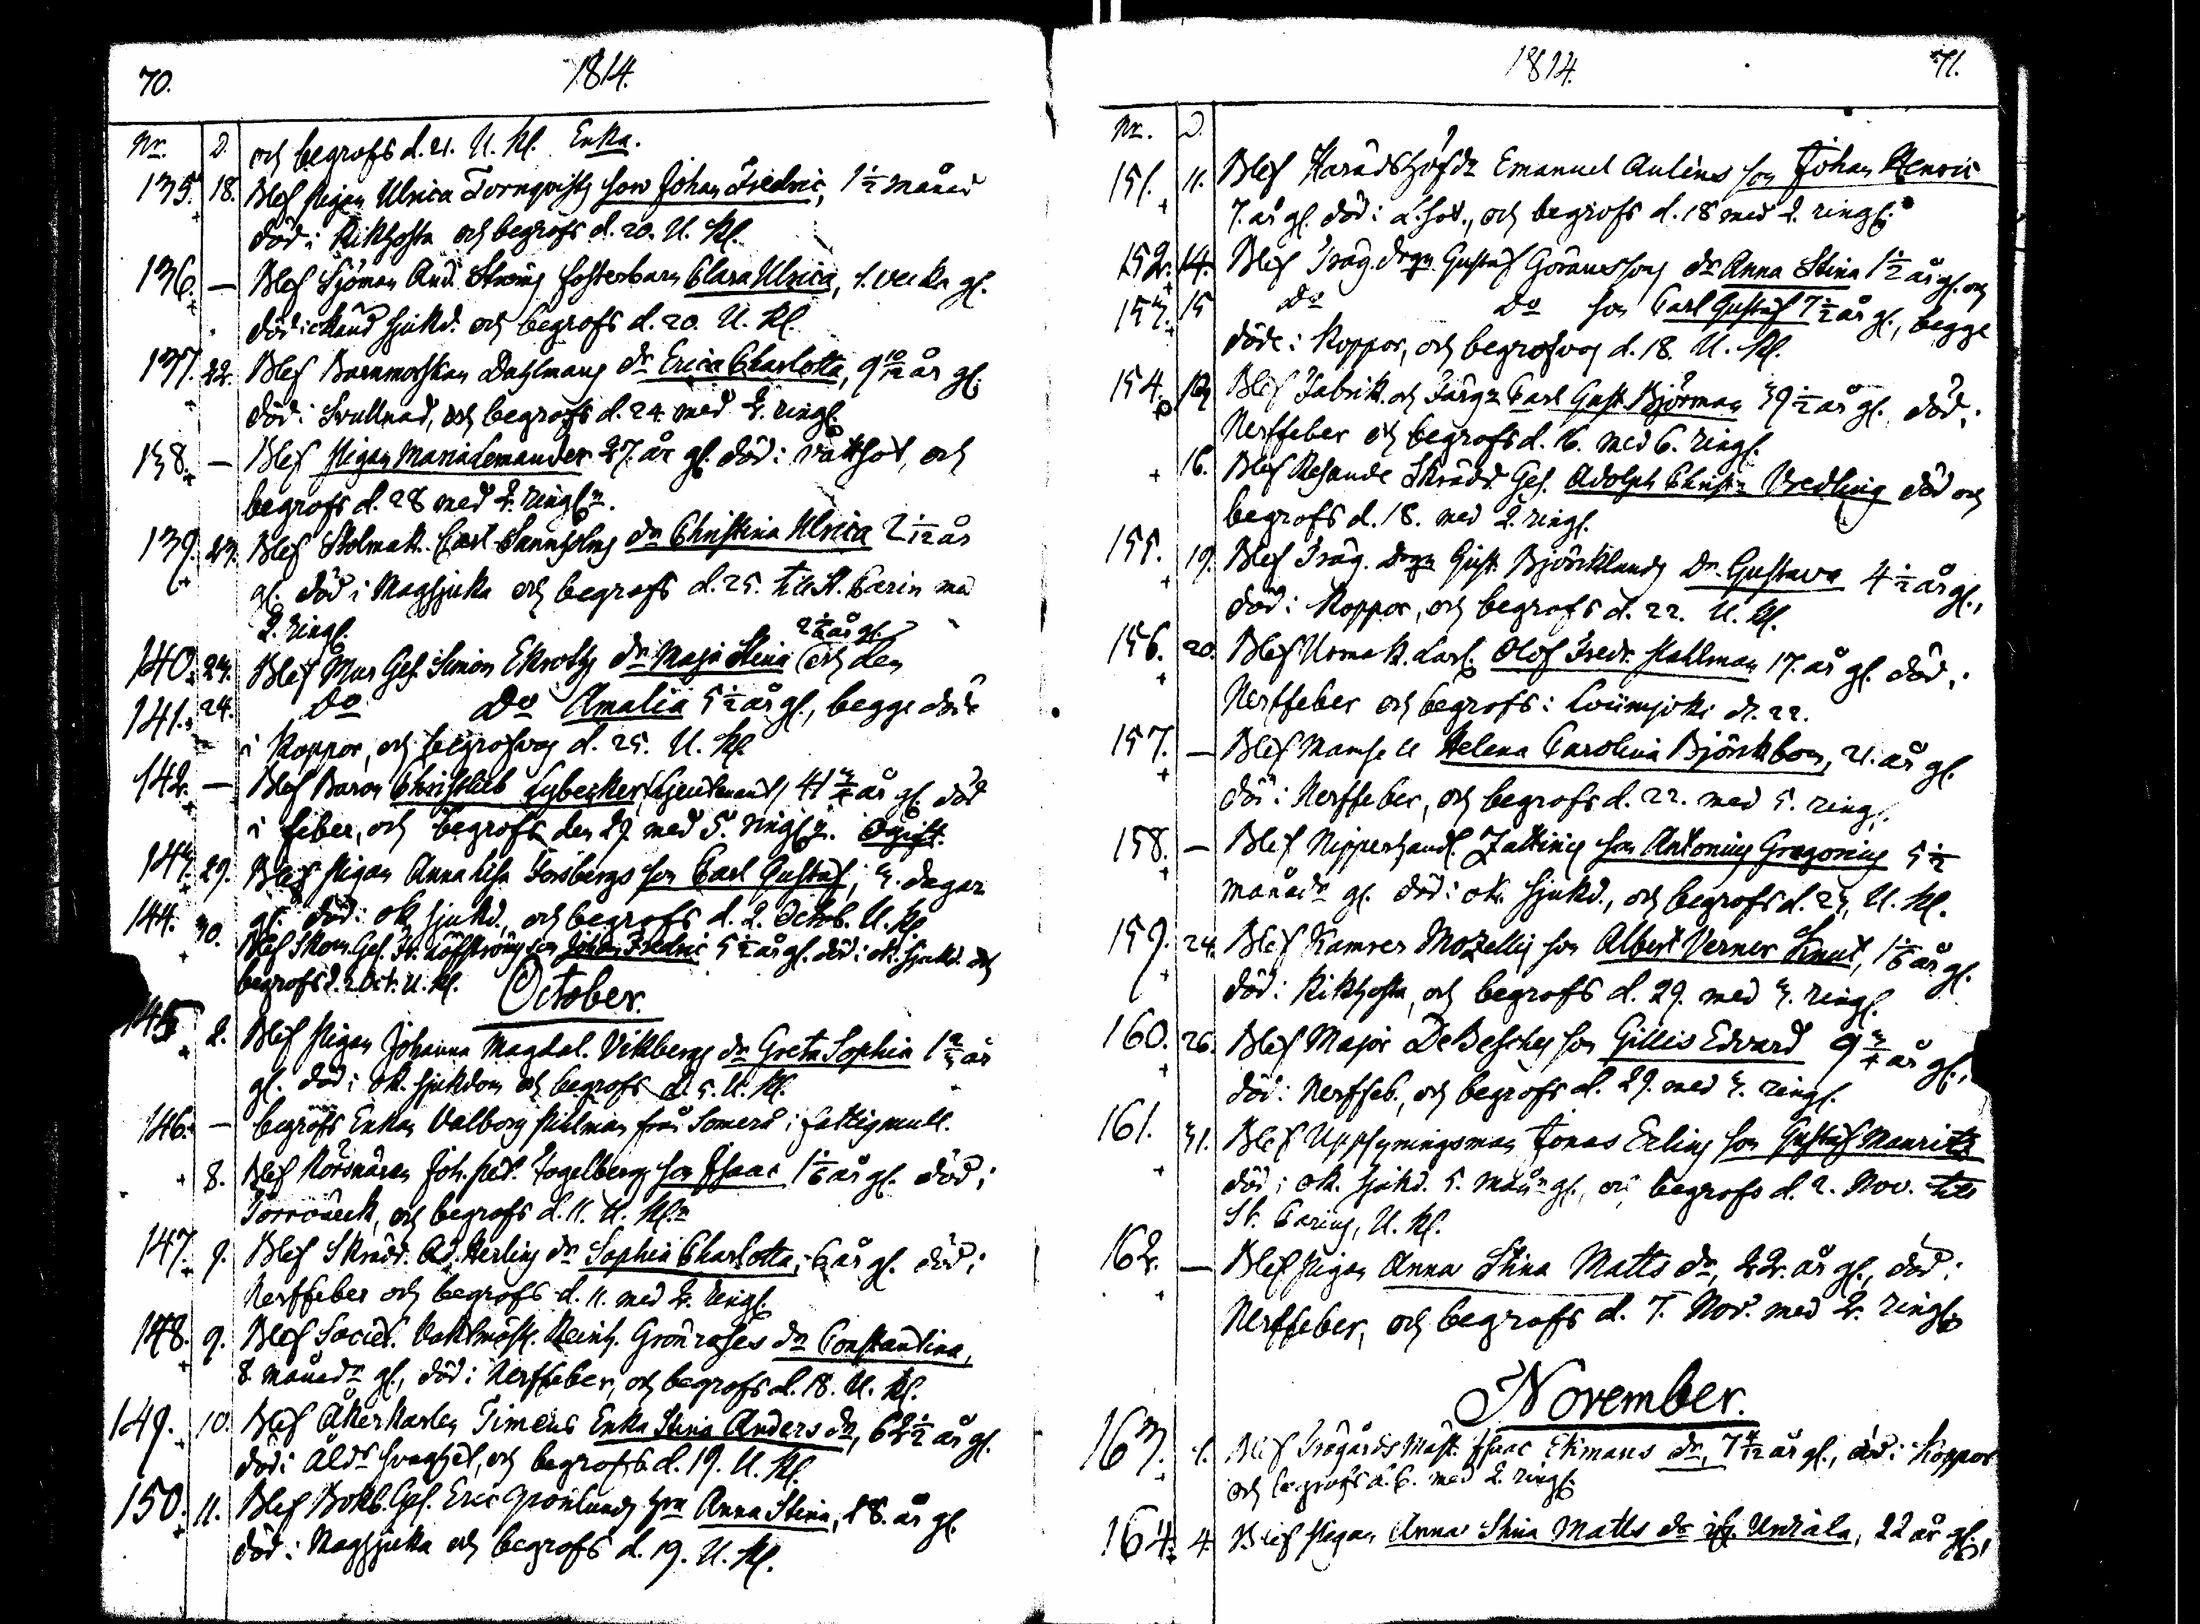 70. 1814.
Nr. D. och begrofs d. 21. U. Kl. Enka.
135. 18. Blef Pigan Ulrica Tornqvists son Johan Fredric, 1 1/2 månad
död i Kikhosta och begrofs d. 20. U. Kl.
136. — Blef Sjöman And. Ströms fosterbarn Clara Ulrica, 1. vecka gl.
död i okänd sjukd. och begrofs d. 20. U. Kl.
137. 22. Blef Barnmorskan Dahlmans dr Erica Charlotta, 9 10/12 år gl.
död i Svullnad, och begrofs d. 24 med 2. ringl.
138. — Blef Pigan Maria Lemander 27. år gl. död i vattsot, och
begrofs d. 28 med 2. ringl.
139. 23. Blef Stolmak. Carl Tannholms dr Christina Ulrica 2 1/12 år
gl. död i Magsjuka och begrofs d. 25. till St. Carin med
2. ringl.
2 1/6 år gl.
140. 23. Blef Mur Ges. Simon Ekroths dr Maja Stina och den
141. 24. Do Do Amalia 5 1/2 år gl., begge döde
i Koppor, och begrofvos d. 25. U. Kl.
142. — Blef Baron Christlieb Lybecker, Lieutenant, 41 3/4 år gl. död
i feber, och begrofs den 29 med 5. ringl. Ogift.
143. 29. Blef Pigan Anna Lisa Forsbergs son Carl Gustaf, 3. dagar
gl. död i ok. sjukd., och begrofs d. 2. Octob. U. Kl.
144. 30. Blef Skom. Ges. Fr. Löfströms son Johan Fredric 5 1/2 år gl. död i ok. sjukd. och
begrofs d. 2 Oct. U. Kl.
October.
145 2. Blef Pigan Johanna Magdal. Vikbergs dr Greta Sophia 1 2/3 år
gl. död i ok. sjukdom och begrofs d. 5. U. Kl.
146. — begrofs Enkan Valborg Pihlman från Somero i fattigmull.
8. Blef Körsnären Joh. Pet. Fogelbergs son Isaac 1 1/6 år gl. död i
Torrvärck, och begrofs d. 11. U. Kl.
147. 9. Blef Skrädd. Ad. Herlins dr Sophia Charlotta, 6 år gl. död i
Nerffeber och begrofs d. 11. med 2. ringl.
148. 9. Blef Societ. Vaktmäst. Heinr. Grönroses dr Constantina,
8 månadr gl., död i Nerffeber, och begrofs d. 18. U. Kl.
149. 10. Blef Åkerkarlen Simeons Enka Stina Anders dr, 62 1/2 år gl.
död i Åldr svaghet, och begrofs d. 19. U. Kl.
150. 11. Blef Bokb. Ges. Eric Grönlunds hru Anna Stina, 28. år gl.
död i Magsjuka och begrofs d. 19. U. Kl.
1814. 71.
Nr. D.
151. 11. Blef Häradshöfd. Emanuel Aulins son Johan Henric
7. år gl. död i , och begrofs d. 18 med 2. ringl.
152. 14. Blef Träg. drgn Gustaf Göranssons dr Anna Stina 1 1/2 år gl. och
153. 15 Do Do son Carl Gustaf 7 1/2 år gl., begge
döde i Koppor, och begrofvos d. 18. U. Kl.
154. Blef Fabrik. och Färg. Carl Gust. Björman 39 1/2 år gl., död i
Nerffeber och begrofs d. 16. med 6. ringl.
16. Blef Resande Skrädd. Ges. Adolph Christ. Vredling död och
begrofs d. 18. med 2. ringl.
155. 19. Blef Träg. drgn Gust. Björklunds Dr. Gustava 4 1/2 år gl.,
död i Koppor, och begrofs d. 22. U. Kl.
156. 20. Blef Urmak. Lärl. Olof Fredr. Hallman 17. år gl. död i
Nerffeber och begrofs i Loimjoki d. 22.
157. — Blef Mamsell Helena Carolina Björkbom, 21. år gl.
död i Nerffeber, och begrofs d. 22. med 5. ringl.
158. — Blef Nipperhandl. Zattinis son Antonius Gregorius 5 1/2
månadr gl. död i ok. sjukd., och begrofs d. 23, U. Kl.
159. 24. Blef Kamrer Mozellis son Albert Verner Knut, 1 1/6 år gl.
död i Kikhosta, och begrofs d. 29. med 3. ringl.
160. 26. Blef Major DeBesches son Gillis Edvard 9 3/4 år gl.,
död i Nerffeb., och begrofs d. 29. med 3. ringl.
161. 31. Blef Uppsyningsman Jonas Erlins son Gustaf Mauritz
död i ok. sjukd. 5. månr gl., och begrofs d. 2. Nov. till
St. Carins, U. Kl.
162. — Blef Pigan Anna Stina Matts dr, 22. år gl., död i
Nerffeber, och begrofs d. 7. Nov. med 2. ringl.
November.
163. 1. Blef Trägårds Mäst. Isaac Ekmans dr, 7 4/12 år gl., död i Koppor
och begrofs d. 6. med 2. ringl.
164. 4. Blef Pigan Anna Stina Matts dr ifr. Undala, 22 år gl.,